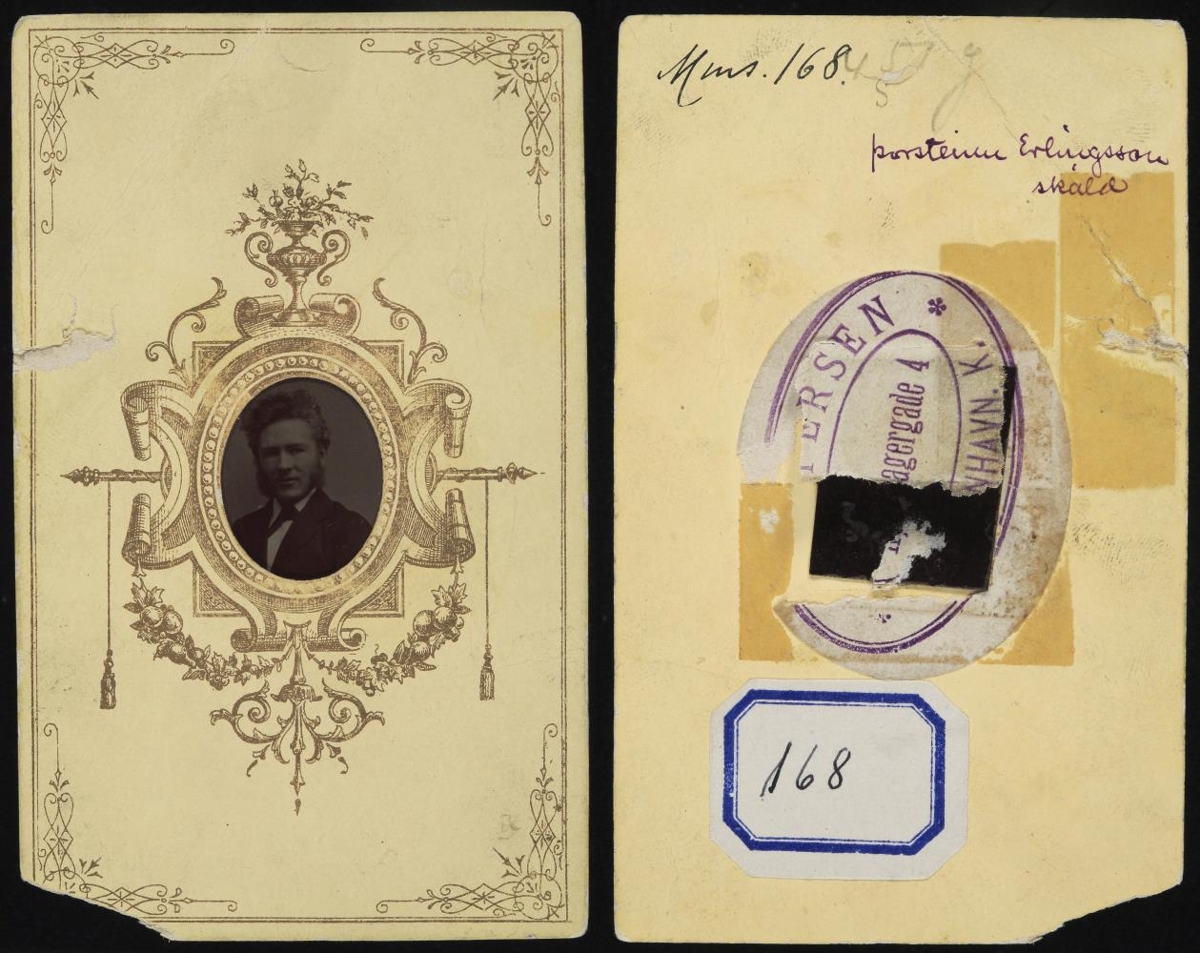 Mms. 168.
457 g
5
þorsteinn Erlingsson
skáld
ERSEN * NHAVN. K.
agergade 4
168